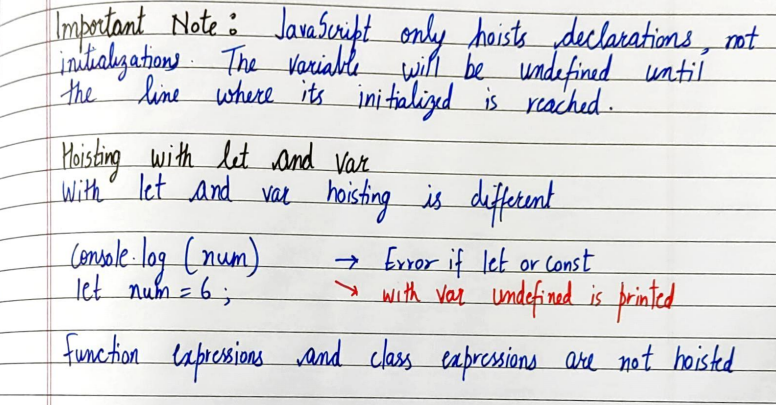 Important Note: JavaScript only hoists declarations, not
initializations. The variable will be undefined until
the line where its initialized is reached.
Hoisting with let and var
With let and var hoisting is different
Console.log (num) → Error if let or const
let num = 6; ↘ with var undefined is printed
function expressions and class expressions are not hoisted